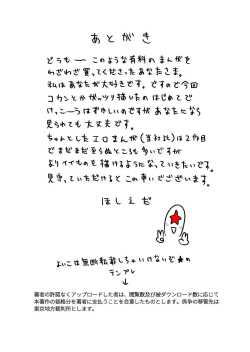 あとがき
どうも── このような有料のまんがを
わざわざ買ってくださったあなたさま。
私はあなたが大好きです。ですので今回
コカンとかガッツリ描いたのはじめてで
けっこーうはずかしいのですがあなたになら
見られても大丈夫です。
ちゃんとしたエロまんが(当社比)は2作目
でまだまだ至らぬところも多いですが
よりイイものを描けるようになっていきたいです。
見守っていただけるとこの幸いでございます。
ほしえだ
よいこは無断転載しちゃいけないぞ★の
テンプレ
著者の許諾なくアップロードした者は、閲覧数及び被ダウンロード数に応じて
本著作の価格分を著者に支払うことを合意したものとします。係争の移管先は
東京地方裁判所とします。